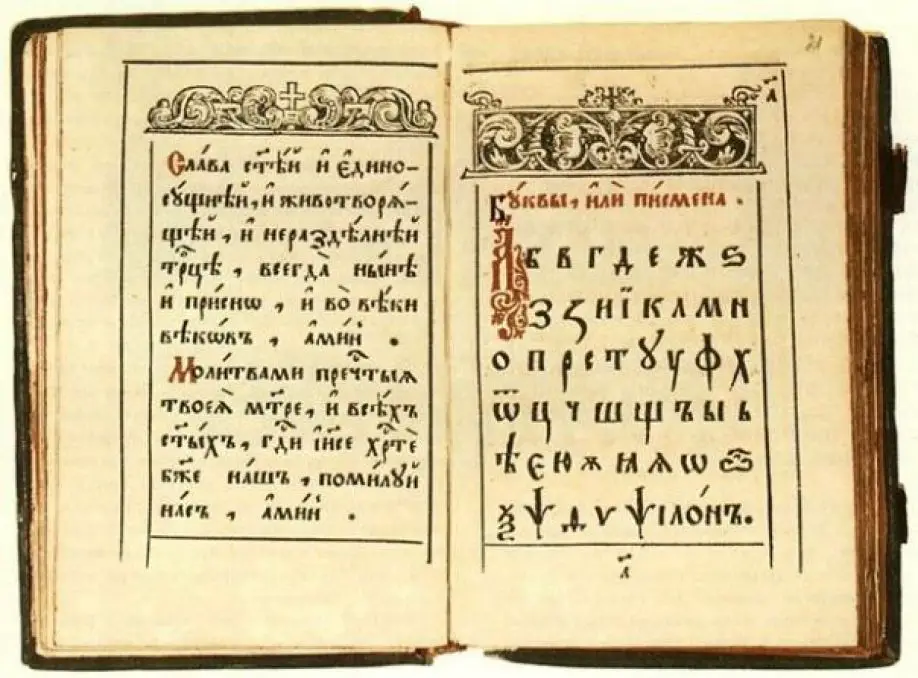 Сла́ва ст҃ѣ́й и҆ є҆дино-
сꙋ́щнѣй, и҆ животворѧ́-
щѣй, и҆ нераздѣ́лнѣй
трⷪ҇цѣ, всегда̀ ны́нѣ
и҆ при́снѡ, и҆ во̀ вѣ́ки
вѣкѡ́въ, а҆ми́нь.
Моли́твами пречⷭ҇тыѧ
твоеѧ̀ мт҃ре, и҆ всѣ́хъ
ст҃ы́хъ, гдⷭ҇и і҆и҃се хрⷭ҇тѐ
бж҃е на́шъ, поми́лꙋй
на́съ, а҆ми́нь.
21
а҃
Бꙋквы, и҆лѝ пи́смена.
А б в г д е ж ѕ
з ꙁ и ї к л м н
о п р с т ꙋ у ф х
ѿ ц ч ш щ ъ ы ь
ѣ є ю ѫ ꙗ ѧ ѡ ѽ
ѯ ѱ ѳ ѵ ѱіло́нъ.
а҃